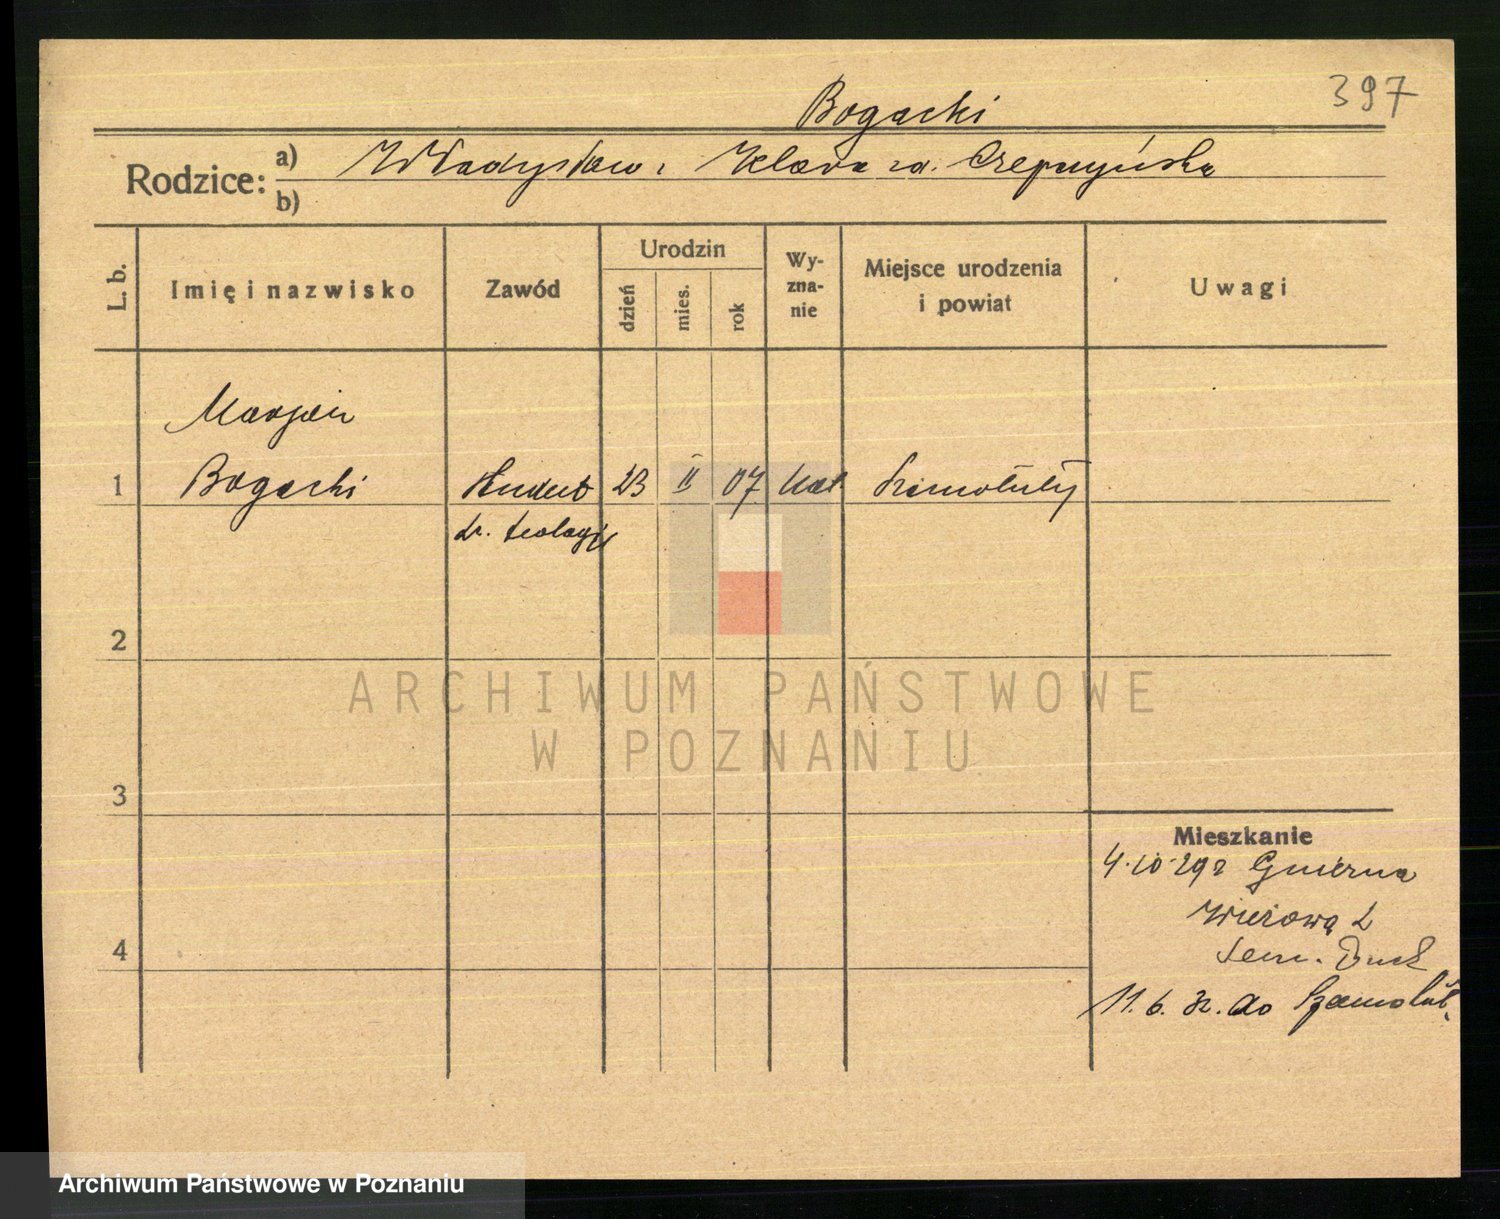 397
Bogacki
Rodzice: a) Władysław i Klara zd. Czepczyńska
b)
L. b.
Imię i nazwisko
Zawód
Urodzin
dzień
mies.
rok
Wy-
zna-
nie
Miejsce urodzenia
i powiat
Uwagi
Marjan
1 Bogacki Student 23 II 07 kat Szamotuły
teologji
2
3
4
Mieszkanie
4.10.29r Gniezno
Wieżowa 2
Sem. Duch
11.6.32. do Szamotuł.
ARCHIWUM PAŃSTWOWE
W POZNANIU
Archiwum Państwowe w Poznaniu